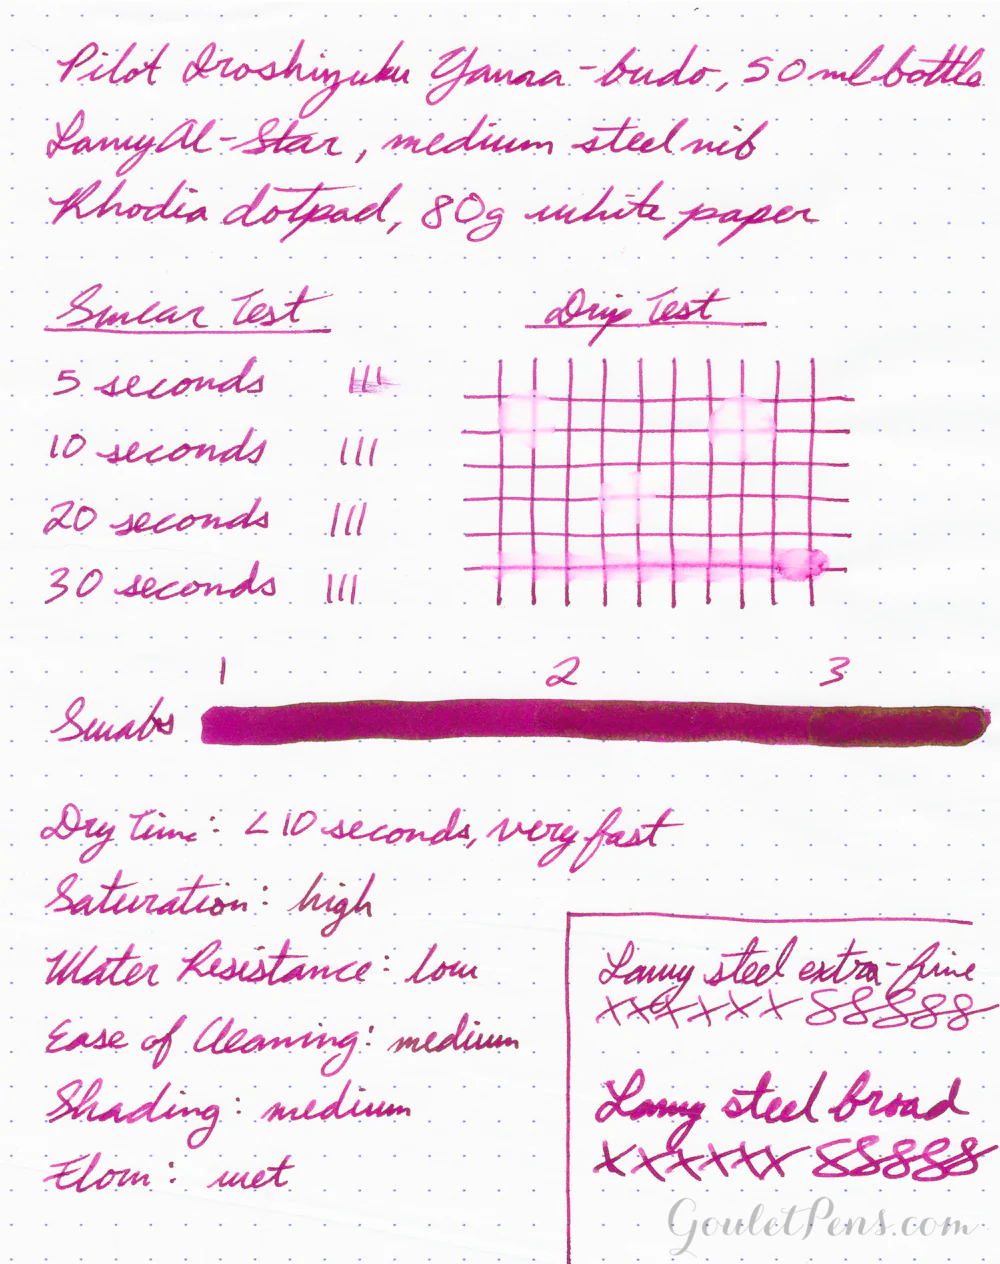 Pilot Iroshizuku Yama-budo, 50ml bottle
Lamy Al-Star, medium steel nib
Rhodia dotpad, 80g white paper
Smear Test
5 seconds
10 seconds
20 seconds
30 seconds
Drip Test
1 2 3
Swabs
Dry Time: < 10 seconds, very fast
Saturation: high
Water Resistance: low
Ease of Cleaning: medium
Shading: medium
Flow: wet
Lamy steel extra-fine
xxxxxx 88888
Lamy steel broad
xxxxxx 88888
GouletPens.com